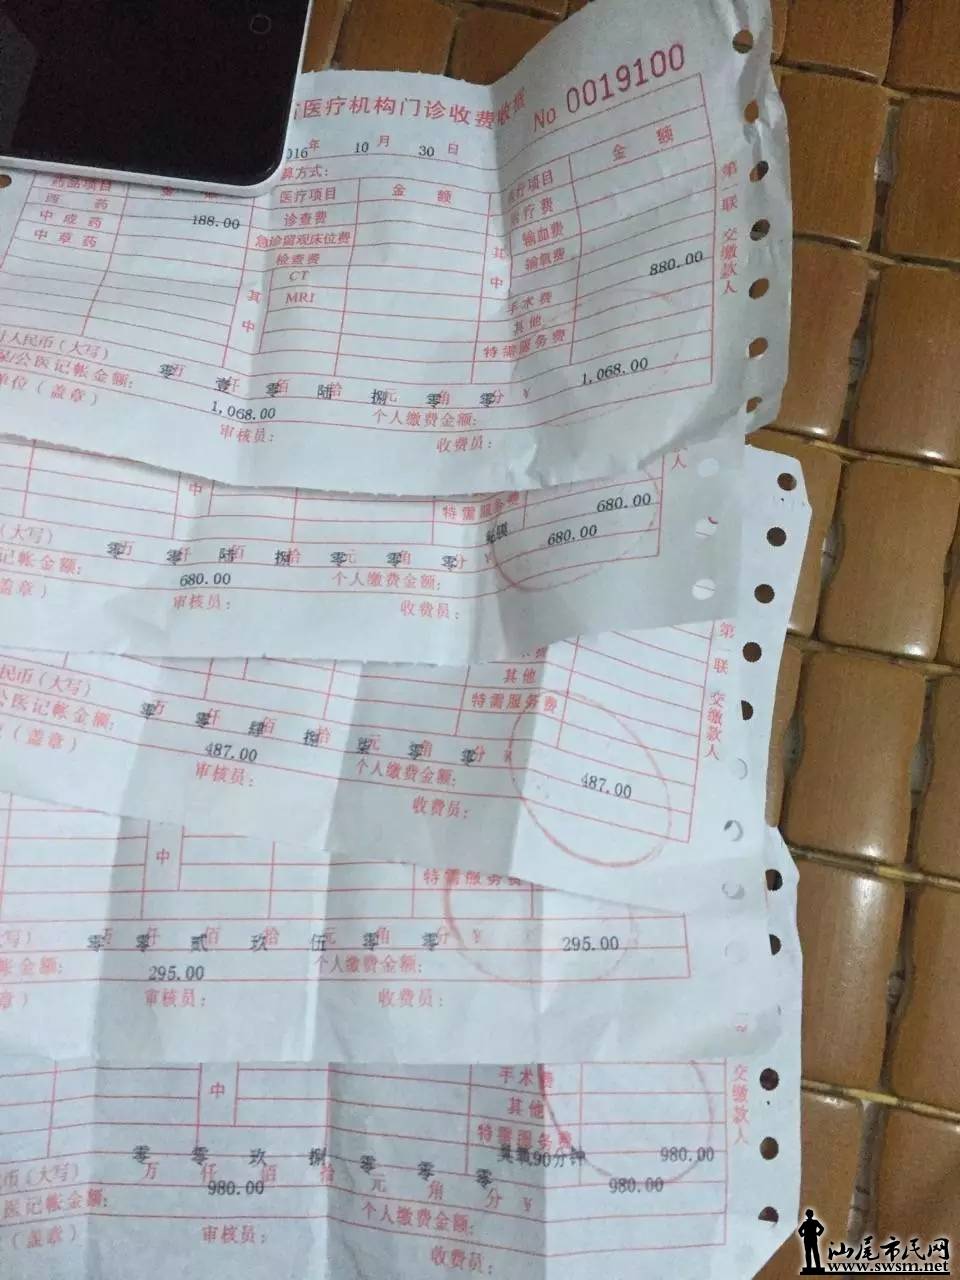 医疗机构门诊收费收据 No 0019100
016年 10月 30日
算方式:
药品项目 金额 医疗项目 金额 医疗项目 金额
西药 188.00 诊查费 治疗费
中成药 急诊留观床位费 输血费
中草药 检查费 输氧费
其中 CT 其中 880.00
MRI 手术费
其他
特需服务费
人民币(大写) 零万 壹仟 零佰 陆拾 捌元 零角 零分 ¥ 1,068.00
公医记帐金额: 1,068.00 个人缴费金额:
单位(盖章) 审核员: 收费员:
第一联 交缴款人
中 特需服务费
680.00
(大写) 零万 零仟 陆佰 捌拾 零元 零角 零分 ¥ 680.00
记帐金额: 680.00 个人缴费金额:
盖章) 审核员: 收费员:
人
其他
特需服务费
民币(大写) 零万 零仟 肆佰 捌拾 柒元 零角 零分 ¥ 487.00
公医记帐金额: 487.00 个人缴费金额:
(盖章) 审核员: 收费员:
第一联 交缴款人
中 特需服务费
写) 零万 零仟 贰佰 玖拾 伍元 零角 零分 ¥ 295.00
帐金额: 295.00 个人缴费金额:
章) 审核员: 收费员:
手术费
中 其他
特需服务费
臭氧90分钟 980.00
币(大写) 零万 零仟 玖佰 捌拾 零元 零角 零分 ¥ 980.00
医记帐金额: 980.00 个人缴费金额:
(盖章) 审核员: 收费员:
交缴款人
汕尾市民网
www.swsm.net